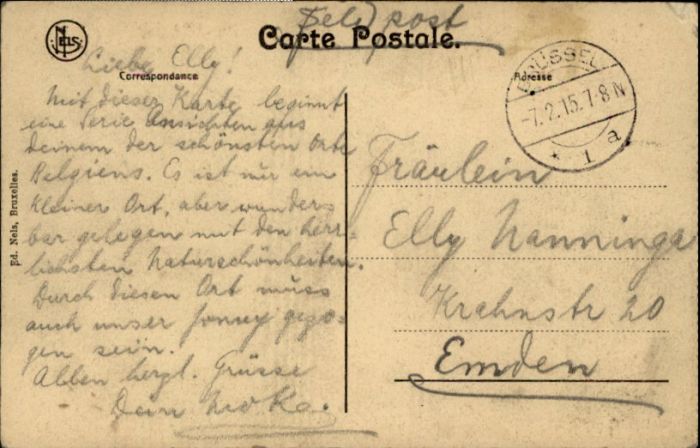 Feldpost
Nels
Carte Postale.
Correspondance
Adresse
BRÜSSEL
-7.2.15.7-8N
* 1 a
Ed. Nels, Bruxelles.
Liebe Elly!
Mit dieser Karte beginnt
eine Serie Ansichten aus
deinem der schönsten Orte
Belgiens. Es ist nur ein
kleiner Ort, aber wunder-
bar gelegen mit den herr-
lichsten Naturschönheiten.
Durch diesen Ort muss
auch unser gezo-
gen sein.
Allen herzl. Grüsse
Dein
Fräulein
Elly Nanninga
Krahnstr 20
Emden